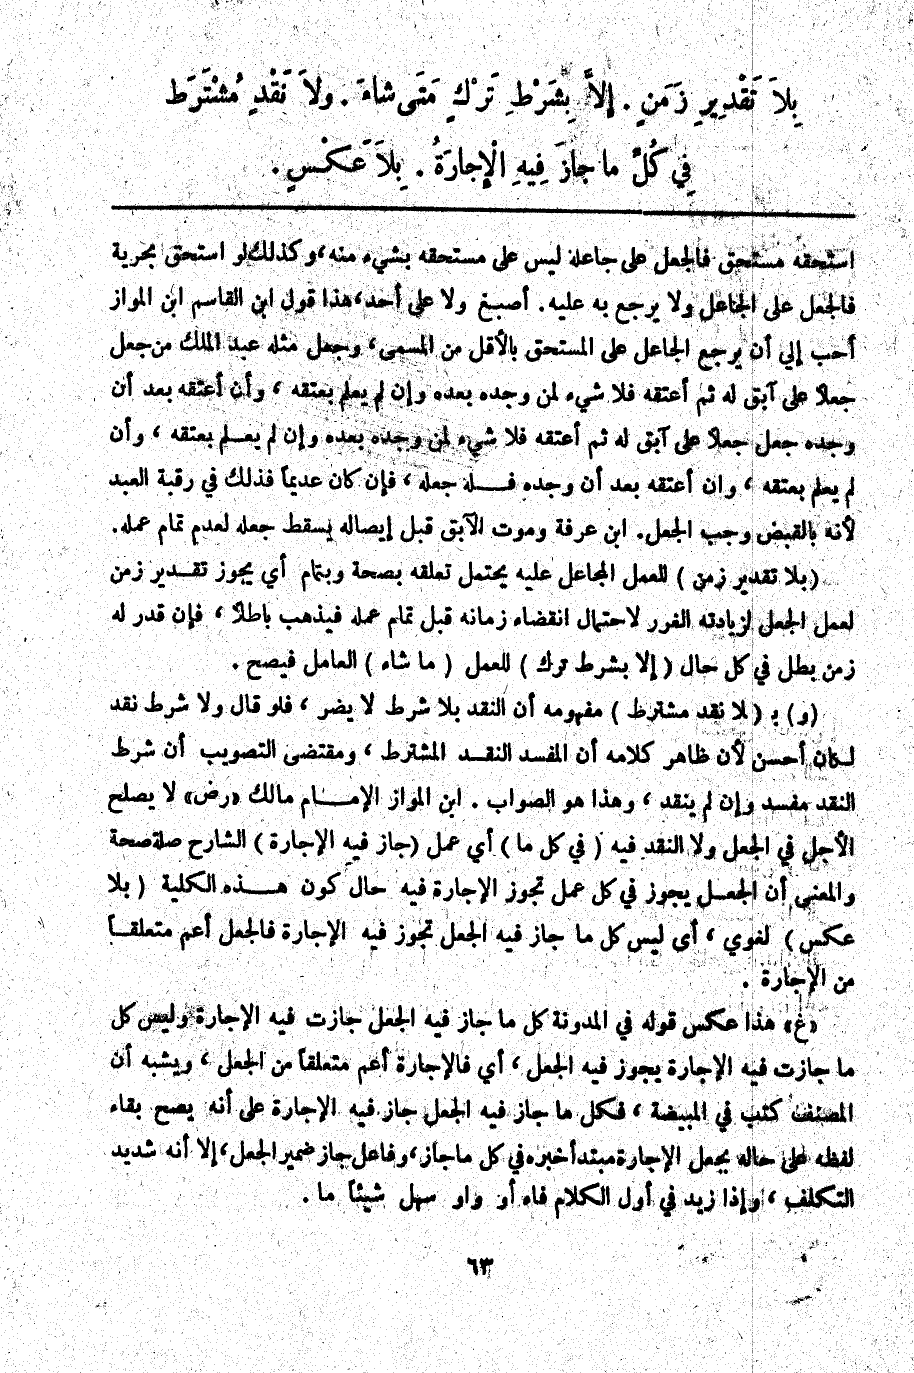 بِلاَ تَقْدِيرِ زَمَنٍ . إِلاَّ بِشَرْطِ تَرْكٍ مَتَى شاءَ . ولاَ نَقْدٍ مُشْتَرَط
فِي كُلِّ ما جازَ فِيهِ الْإِجارَةُ . بِلاَ عَكْسٍ .
استحقه مستحق فالجعل على جاعله ليس على مستحقه بشيء منه، وكذلك لو استحق بحرية
فالجعل على الجاعل ولا يرجع به عليه. أصبغ ولا على أحد، هذا قول ابن القاسم ابن المواز
أحب إلي أن يرجع الجاعل على المستحق بالأقل من المسمى، وجعل مثله عبد الملك من جعل
جعلاً على آبق له ثم أعتقه فلا شيء لمن وجده بعده وإن لم يعلم بعتقه ، وأن أعتقه بعد أن
وجده جعل جعلاً على آبق له ثم أعتقه فلا شيء لمن وجده بعده وإن لم يعـلم بعتقه ، وأن
لم يعلم بعتقه ، وان أعتقه بعد أن وجده فـــله جعله ، فإن كان عديماً فذلك في رقبة العبد
لأنه بالقبض وجب الجعل. ابن عرفة وموت الآبق قبل إيصاله يسقط جعله لعدم تمام عمله.
(بلا تقدير زمن ) للعمل المجاعل عليه يحتمل تعلقه بصحة وبتمام أي يجوز تقـدير زمن
لعمل الجعل لزيادته الغرر لاحتمال انقضاء زمانه قبل تمام عمله فيذهب باطلاً ، فإن قدر له
زمن بطل في كل حال ( إلا بشرط ترك ) للعمل ( ما شاء ) العامل فيصح .
(و) بـ ( لا نقد مشترط ) مفهومه أن النقد بلا شرط لا يضر ، فلو قال ولا شرط نقد
لـكان أحسن لأن ظاهر كلامه أن المفسد النقـد المشترط ، ومقتضى التصويب أن شرط
النقد مفسد وإن لم ينقد ، وهذا هو الصواب . ابن المواز الإمــام مالك «رض» لا يصلح
الأجل في الجعل ولا النقد فيه ( في كل ما ) أي عمل (جاز فيه الإجارة ) الشارح صلة صحة
والمعنى أن الجعـل يجوز في كل عمل تجوز الإجارة فيه حال كون هــذه الكلية ( بلا
عكس ) لغوي ، أى ليس كل ما جاز فيه الجعل تجوز فيه الإجارة فالجعل أعم متعلقـاً
من الإجارة .
«غ» هذا عكس قوله في المدونة كل ما جاز فيه الجعل جازت فيه الإجارة وليس كل
ما جازت فيه الإجارة يجوز فيه الجعل ، أي فالإجارة أعم متعلقاً من الجعل ، ويشبه أن
المصنف كتب في المبيضة ، فكل ما جاز فيه الجعل جاز فيه الإجارة على أنه يصح بقاء
لفظه على حاله بجعل الإجارة مبتدأ خبره في كل ما جاز، وفاعل جاز ضمير الجعل، إلا أنه شديد
التكلف ، وإذا زيد في أول الكلام فاء أو واو سهل شيئاً ما .
٦٣